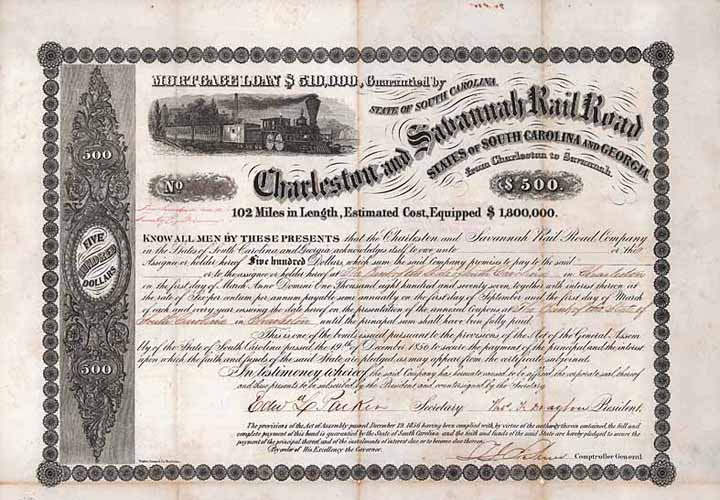 MORTGAGE LOAN $ 510,000, Guarantied by
STATE OF SOUTH CAROLINA.
Charleston and Savannah Rail Road
STATES OF SOUTH CAROLINA AND GEORGIA,
from Charleston to Savannah.
No
$ 500.
102 Miles in Length, Estimated Cost, Equipped $ 1,800,000.
500
FIVE HUNDRED DOLLARS
500
KNOW ALL MEN BY THESE PRESENTS that the Charleston and Savannah Rail Road Company
in the States of South Carolina and Georgia acknowledges itself to owe unto or the
Assignee or holder hereof Five hundred Dollars which sum the said Company promise to pay to the said
or to the assignee or holder hereof at The Bank of the State of South Carolina in Charleston
on the first day of March Anno Domini One Thousand eight hundred and seventy seven, together with interest thereon at
the rate of Six per centum per annum payable semi annually on the first day of September and the first day of March
of each and every year, ensuing the date hereof on the presentation of the annexed Coupons at The Bank of the State of
South Carolina in Charleston until the principal sum shall have been fully paid.
This is one of the bonds issued pursuant to the provisions of the Act of the General Assem
bly of the State of South Carolina passed the 19th December 1856 to secure the payment of the principal and the interest
upon which the faith and funds of the said State are pledged, as may appear from the certificate subjoined.
In testimony whereof the said Company has hereunto caused to be affixed the corporate seal thereof
and these presents to be subscribed by the President and countersigned by the Secretary.
Edw. L. Parker Secretary Thos. F. Drayton President,
The provisions of the Act of Assembly, passed December 19, 1856 having been complied with, by virtue of the authority therein contained, the full and
complete payment of this bond is guarantied by the State of South Carolina and the faith and funds of the said State are hereby pledged to secure the
payment of the principal thereof, and of the instalments of interest due or to become due thereon.
By order of His Excellency the Governor.
Comptroller General